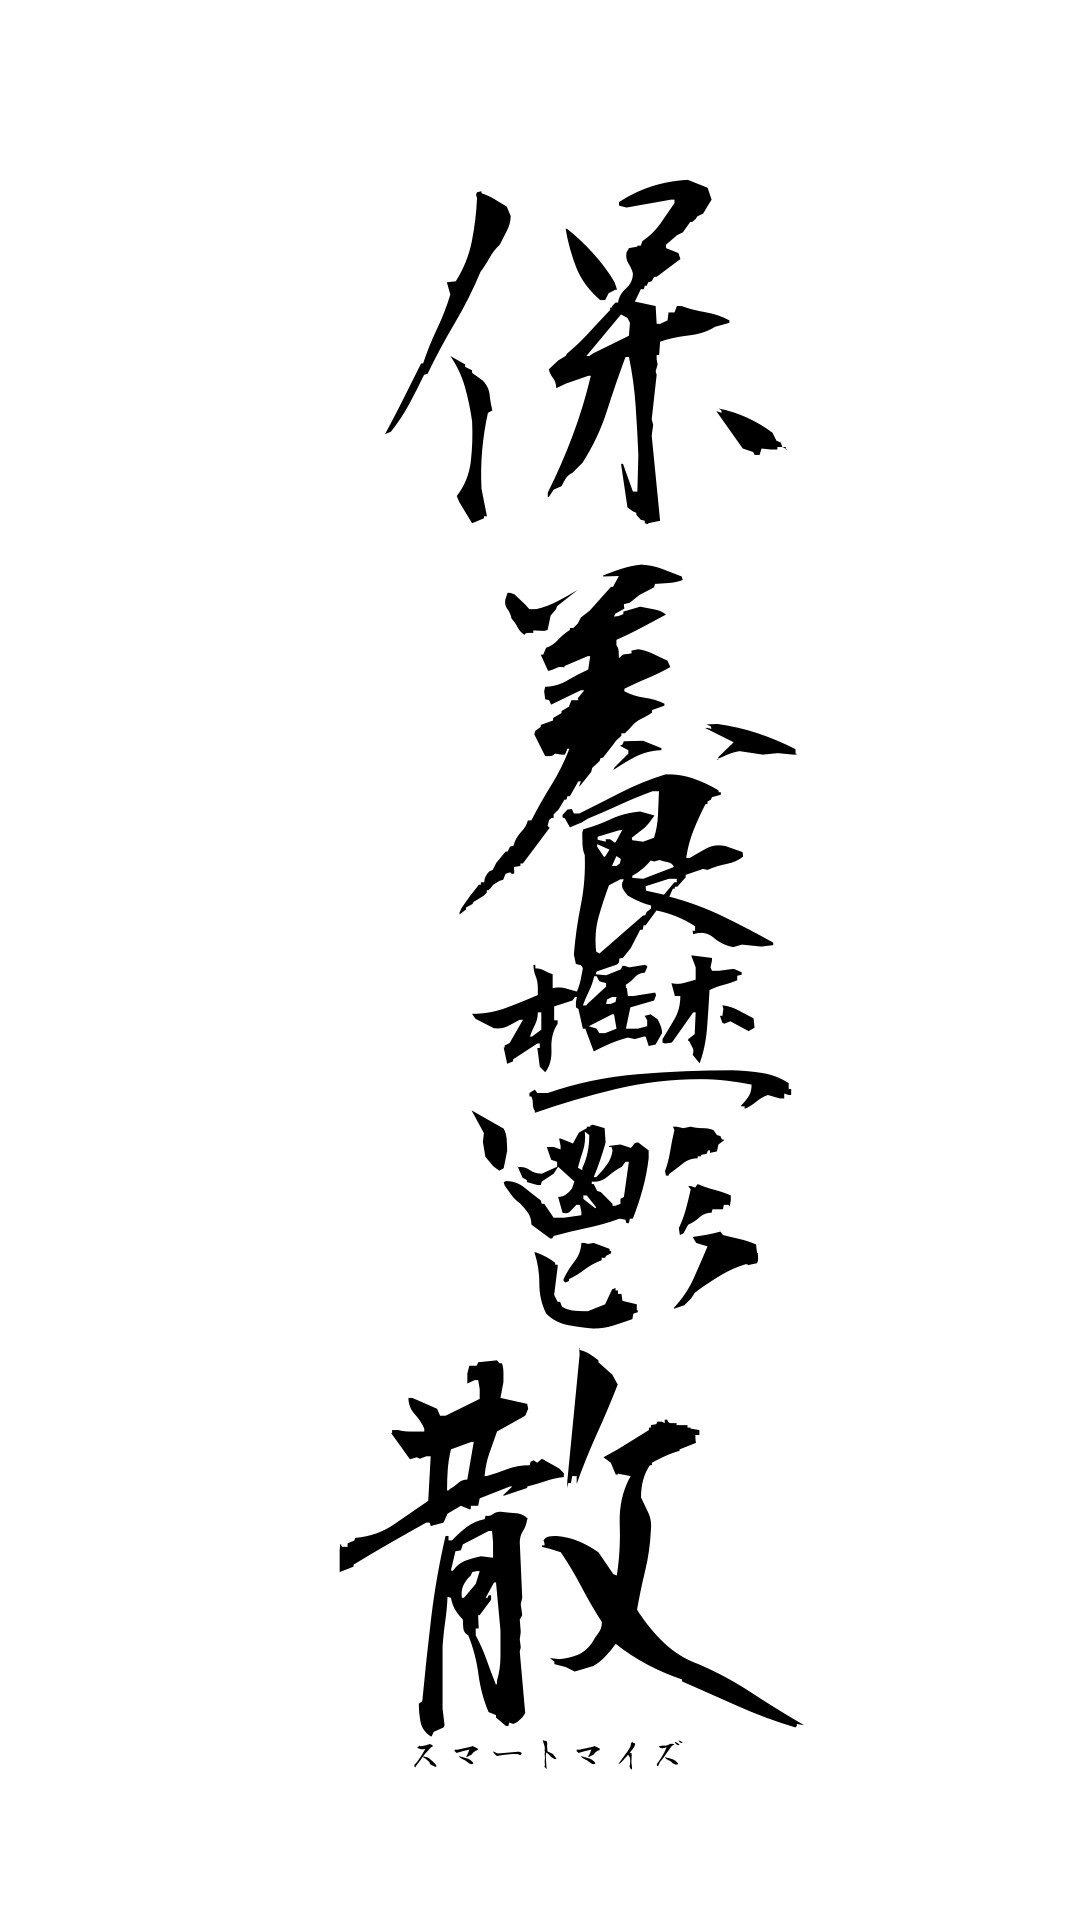 保養鬱散
スマートマイズ